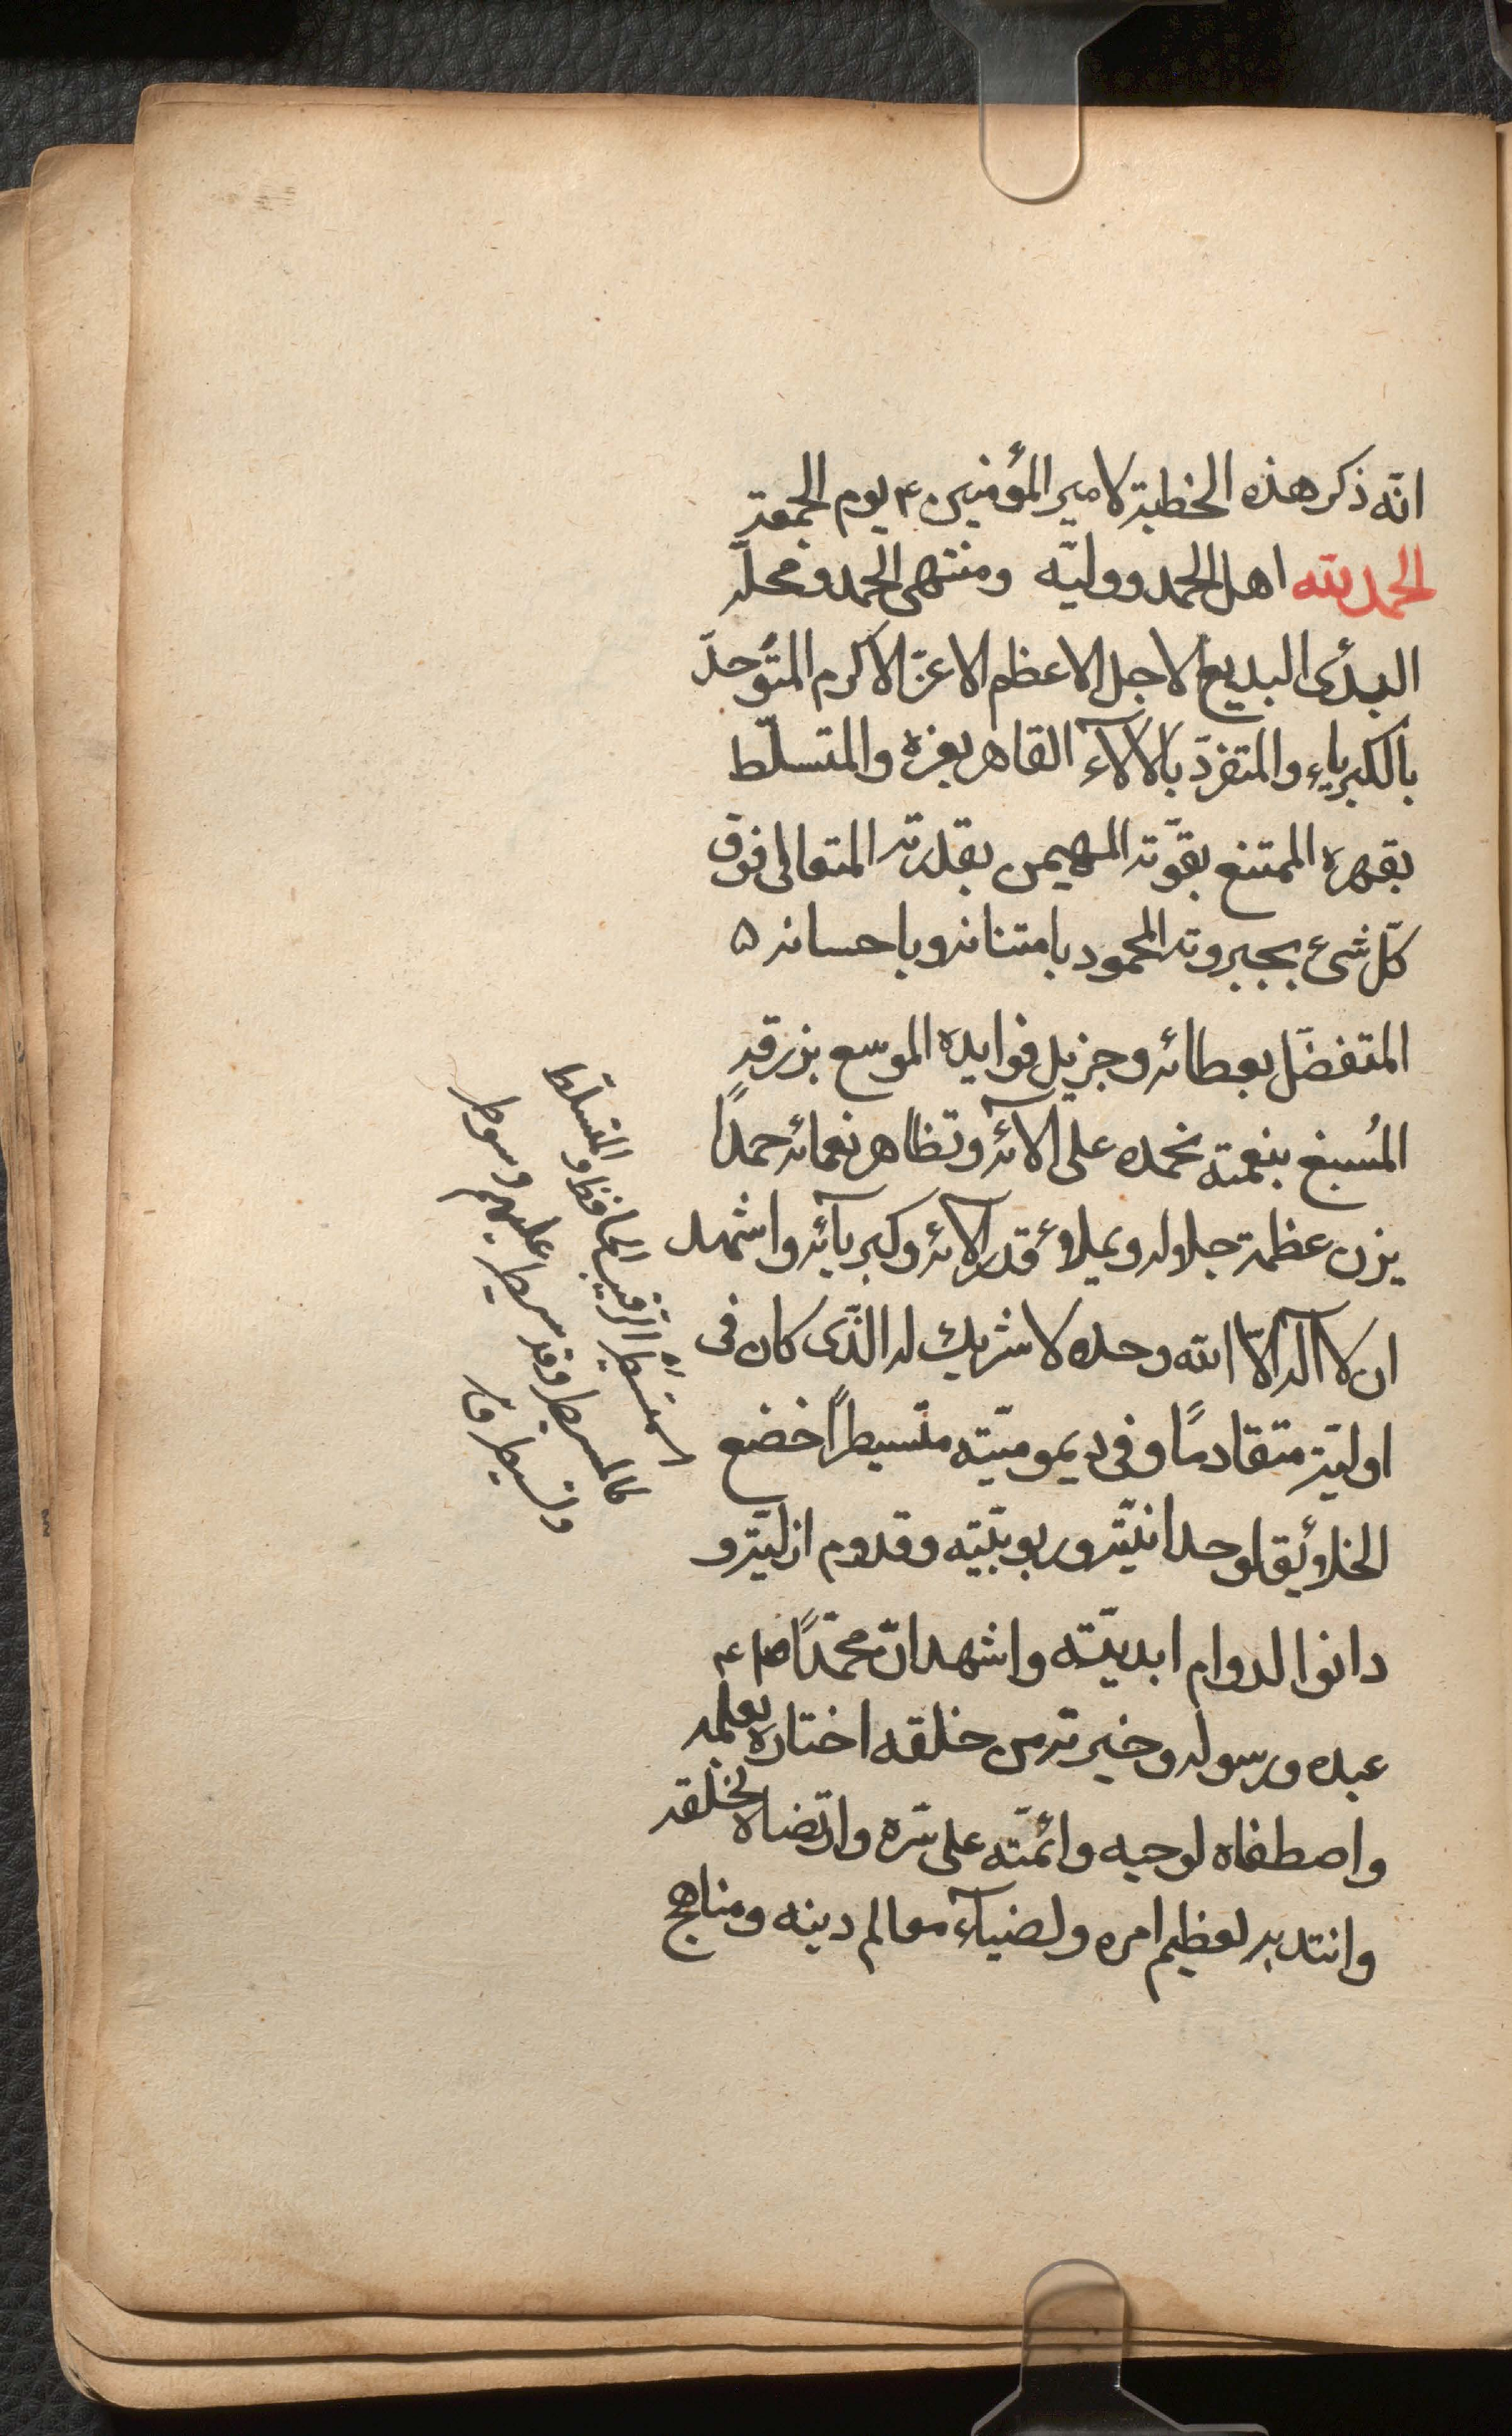 انّه ذكر هذه الخطبة لامير المؤمنين ع يوم الجمعة
الحمد لله اهل الحمد ووليّه ومنتهى الحمد ومحلّه
البدئ البديع الاجل الاعظم الاعزّ الاكرم المتوحدّ
بالكبرياء والمتفردّ بالآلاء القاهر بعزه والمتسلّط
بقهره الممتنع بقوّته المهيمن بقدرته المتعالى فوق
كلّ شىء بجبروته المحمود بامتنانه وباحسانه ۵
المتفضّل بعطائه وجزيل فوايده الموسع برزقه
المُسبغ بنعمته نحمده على آلائه وتظاهر نعمائه حمداً
يزن عظمة جلاله ويملاؤ قدر آلائه وكبريآئه واشهد
ان لا اله الاّ الله وحده لا شريك له الذّى كان فى
اوليّته متقادماً وفى ديموميّته متسيطراً خضع
الخلائق لوحدانيّته وربوبيّته وقدوم ازليّته و
دانوا لدوام ابديّته واشهد انّ محمّداً ص ع
عبده ورسوله وخيرته من خلقه اختاره بعلمه
واصطفاه لوحيه وائمّته على سّره وارتضاه لخلقه
وانتدبه لعظيم امره ولضيآء معالم دينه ومناهج
المسيطر الرقيب الحافظ والمتسلّط
كالمسيطر وقد سيطر عليهم وسوطر
وتسيطر ق